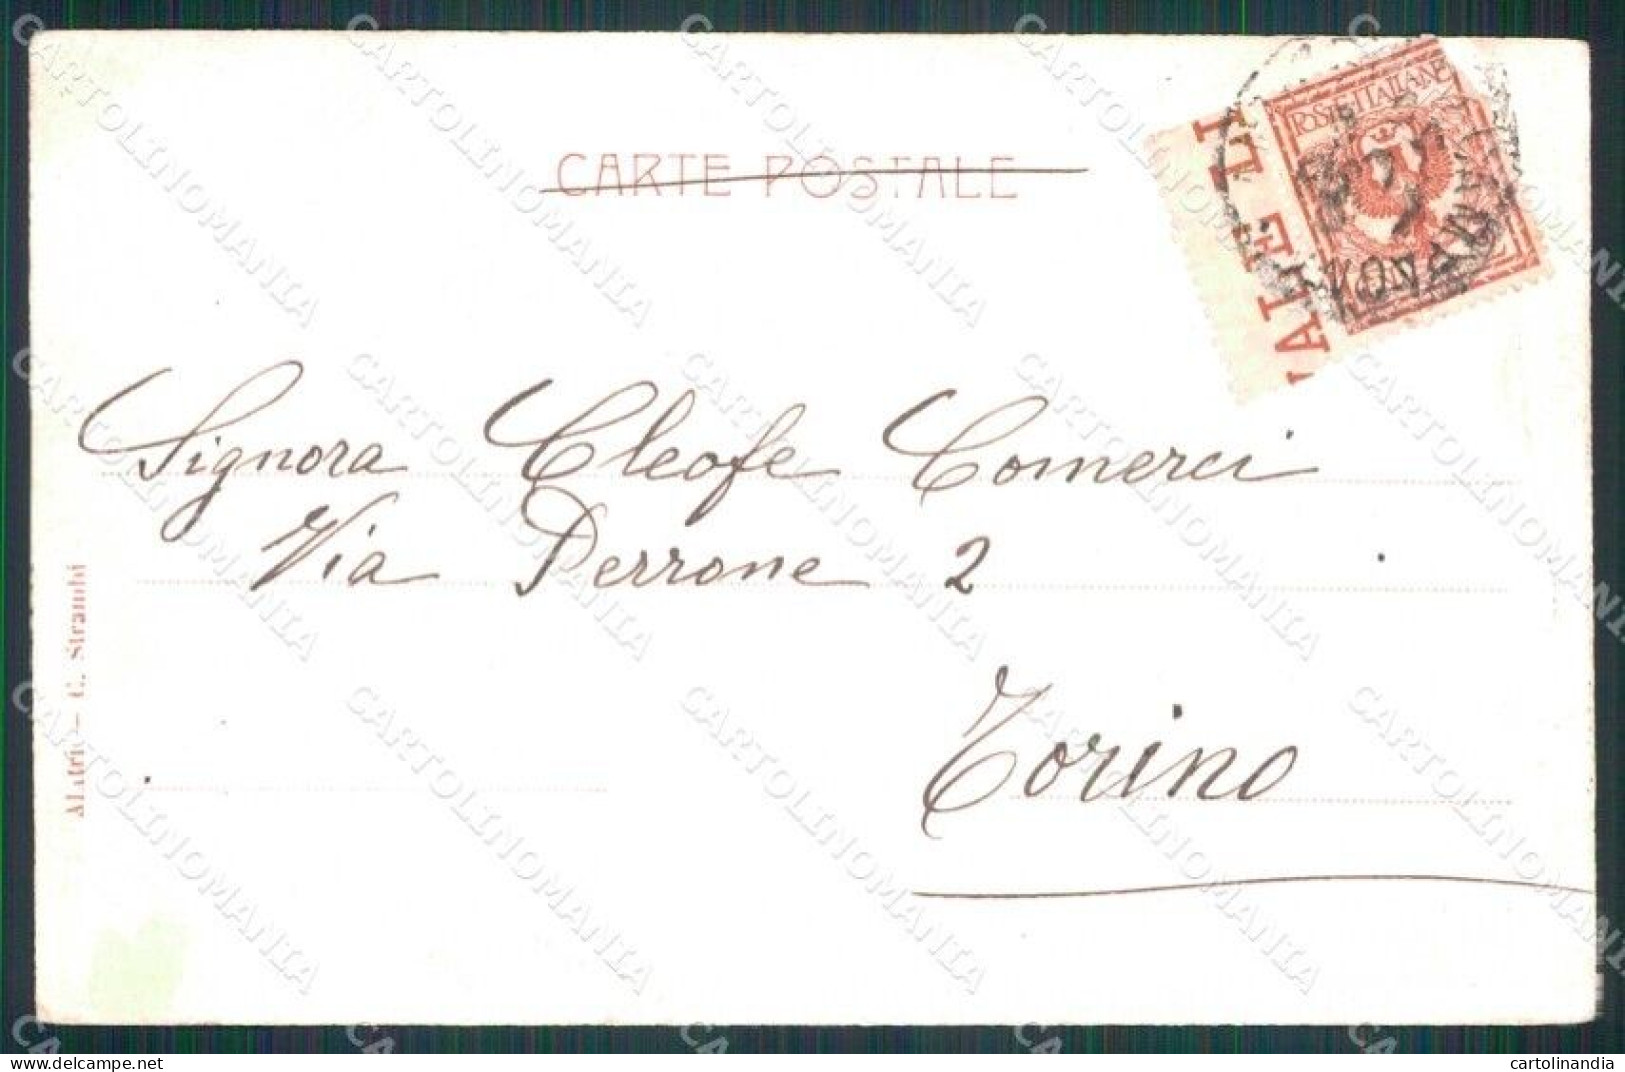 CARTE POSTALE
POSTE ITALIANE
ALE LI
Signora Cleofe Comerci
Via Perrone 2
Torino
Alatri — C. Strambi
CARTOLINOMANIA
cartolinandia